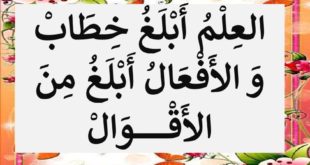 العِلْمُ أَبْلَغُ خِطَابْ
وَ الأَفْعَالُ أَبْلَغُ مِنَ
الأَقْـــوَالْ